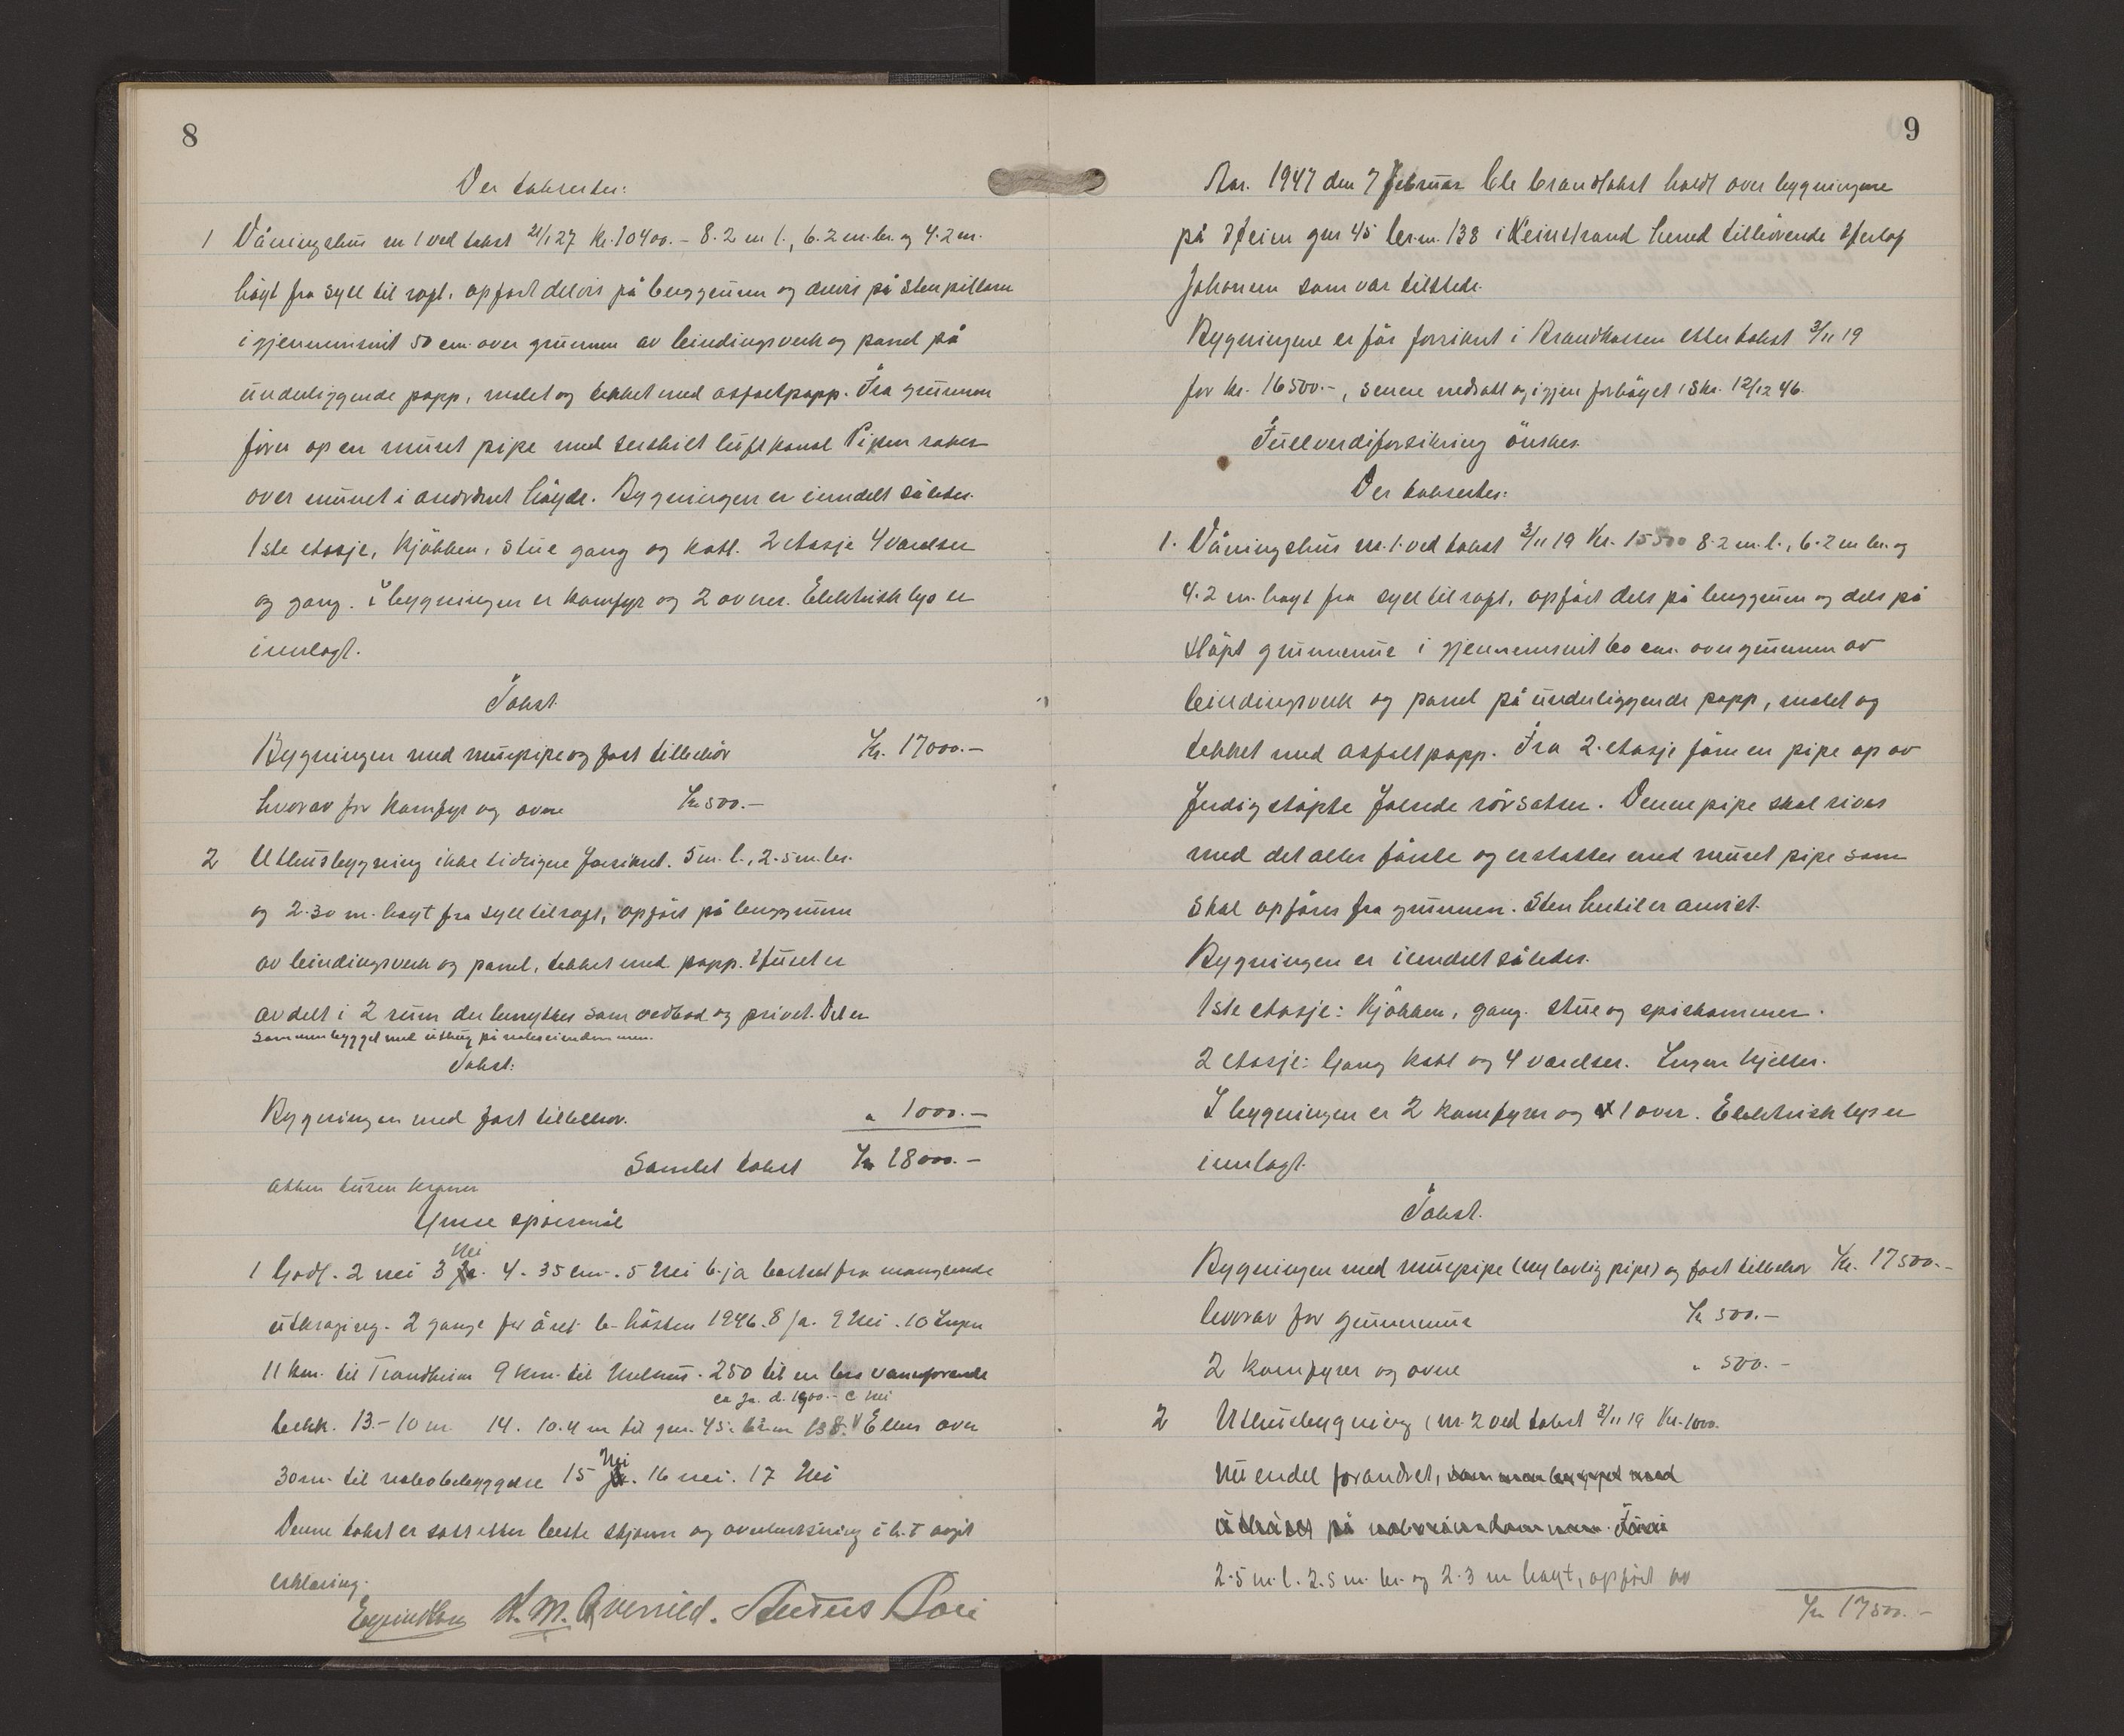 8
Der takserter:
1 Våningshus nr 1 ved takst 21/1 27 Kr. 10400.- 8.2 m l., 6.2 m. br. og 4.2 m.
høyt fra syll til raft. opført delvis på berggrunn og delvis på stenpillarer
i gjennemsnit 50 cm. over grunnen av bindingsverk og panel på
underliggende papp, malet og tekket med asfaltpapp. Fra grunnen
fører op en muret pipe med serskilt luftkanal Pipen raker
over mønet i anordnet høyde. Bygningen er inndelt således.
1ste etasje, kjøkken, stue gang og kott. 2 etasje 4 værelser
og gang. i bygningen er komfyr og 2 ovner. Elektrisk lys er
innlagt.
Takst.
Bygningen med murpipe og fast tilbehør Kr. 17000.-
hvorav for komfyr og ovne Kr 500.-
2 Uthusbygning ikke tidligere forsikret. 5 m. l., 2.5 m. br.
og 2.30 m. høyt fra syll til raft, opført på berggrunn
av bindingsverk og panel, tekket med papp. Huset er
avdelt i 2 rum der benyttes som vedbod og privet. Det er
sammenbygget med uthus på naboeiendommen.
Takst:
Bygningen med fast tilbehør. " 1000.-
Samlet takst Kr 18000.-
Atten tusen kroner
Ymse spørsmål
1 Godt. 2 nei 3 Nei. 4. 35 cm. 5 Nei 6. ja bortset fra manglende
utkraging. 2 gange for året. b- høsten 1946. 8 ja. 9 Nei. 10 Ingen
11 km. til Trondheim 9 km. til Melhus. 250 til en bra vannførende
ca ja. d. 1900.- e nei
bekk. 13.- 10 m 14. 10.4 m til gnr. 45. br. nr 138. Ellers over
30 m. til nabobebyggelse 15 Nei. 16 nei. 17 Nei
Denne takst er satt etter beste skjønn og overbevisning i h.t avgit
erklæring.
K. M. Kvernild.
9
Aar. 1947 den 7 februar ble branntakst holdt over bygningene
på Heim gnr 45 br. nr. 138 i Leinstrand herred tilhørende Herlof
Johansen som var tilstede.
Bygningene er før forsikret i Brandkassen etter takst 3/11 19
for kr. 16500.-, senere nedsatt og igjen forhøyet i skr. 12/12 46.
Fullverdiforsikring ønskes.
Der takserter:
1. Våningshus nr. 1. ved takst 3/11 19 Kr. 15500 8.2 m. l., 6.2 m br. og
4.2 m. høyt fra syll til raft, opført dels på berggrunn og dels på
støpt grunnmur i gjennemsnit 60 cm. over grunnen av
bindingsverk og panel på underliggende papp, malet og
tekket med asfaltpapp. Fra 2. etasje fører en pipe op av
ferdigstøpte falsede rørsatser. Denne pipe skal rives
med det aller første og erstattes med muret pipe som
skal opføres fra grunnen. Sten hertil er anvist.
Bygningen er inndelt således.
1ste etasje: Kjøkken, gang. stue og spiskammer.
2 etasje: Gang kott og 4 værelser. Ingen kjeller.
I bygningen er 2 komfyrer og 1 ovn. Elektrisk lys er
innlagt.
Takst.
Bygningen med murpipe (ny lovlig pipe) og fast tilbehør Kr. 17500.-
hvorav for grunnmur Kr 500.-
2 komfyrer og ovne " 500.-
2 Uthusbygning (nr. 2 ved takst 3/11 19 Kr. 1000.
nu endel forandret, sammenbygget med
uthuset på naboeiendommen.
2.5 m. l. 2.5 m. br. og 2.3 m høyt, opført av
Kr 17500.-